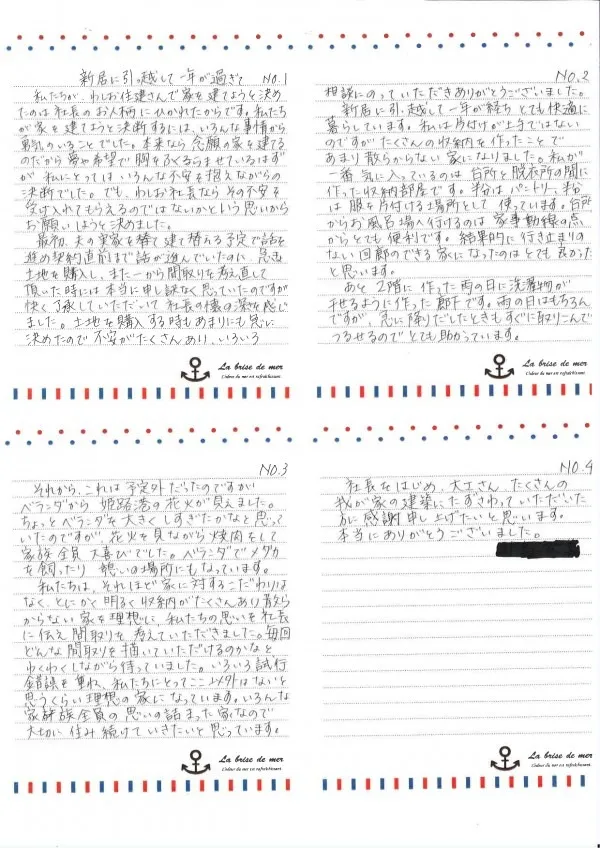 新居に引っ越して一年が過ぎて NO.1
私たちが、わしお住建さんで家を建てようと決め
たのは社長のお人柄にひかれたからです。私たち
が家を建てようと決断するには、いろんな事情から
勇気のいることでした。本来なら念願の家を建てる
のだから夢や希望で胸をふくらませているはず
が 私にとっては いろんな不安を抱えながらの
決断でした。でも、わしお社長なら その不安を
受け入れてもらえるのではないかという思いから
お願いしようと決めました。
最初、夫の実家を建て替える予定で話を
進め契約直前まで話が進んでいたのに 急遽
土地を購入し、また一から間取りを考え直して
頂いた時には本当に申し訳なく思っていたのですが
快く了承していただいて 社長の懐の深さを感じ
ました。土地を購入する時もあまりにも急に
決めたので 不安がたくさんあり、いろいろ
La brise de mer
L'odeur du mer est rafraîchissant.
NO.2
相談にのっていただきありがとうございました。
新居に引っ越して一年が経ち とても快適に
暮らしています。私は片付けが上手ではない
のですが たくさんの収納を作ったことで
あまり散らからない 家になりました。私が
一番 気に入っているのは 台所と脱衣所の間に
作った収納部屋です。半分はパントリー、半分
は 服を片付ける場所として 使っています。台所
からお風呂場へ行けるのは 家事動線の点
からとても便利です。結果的に行き止まりの
ない 回廊のできる家になったのはとても良かった
と思います。
あと 2階に 作った 雨の日に洗濯物が
干せるように作った廊下です。雨の日はもちろん
ですが、急に降りだしたときもすぐに取りこんで
つるせるのでとても助かっています。
La brise de mer
L'odeur du mer est rafraîchissant.
NO.3
それから、これは予定外だったのですが
ベランダから 姫路港の花火が見えました。
ちょっとベランダを大きくしすぎたかなと思って
いたのですが、花火を見ながら焼肉をして
家族全員 大喜びでした。ベランダでメダカ
を飼ったり 憩いの場所にもなっています。
私たちは、それほど家に対するこだわりは
なく、とにかく明るく収納がたくさんあり散ら
からない 家を理想に、私たちの思いを社長
に伝え 間取りを 考えていただきました。毎回
どんな 間取りを 描いていただけるのかなと
わくわくしながら待っていました。いろいろ試行
錯誤を重ね、私たちにとってここ以外はないと
思うくらい理想の家になっています。いろんな
家族全員の 思いの詰まった家なので
大切に住み続けていきたいと思っています。
La brise de mer
L'odeur du mer est rafraîchissant.
NO.4
社長をはじめ、大工さん、たくさんの
我が家の建築にたずさわっていただいた
方に感謝申し上げたいと思います。
本当にありがとうございました。
La brise de mer
L'odeur du mer est rafraîchissant.